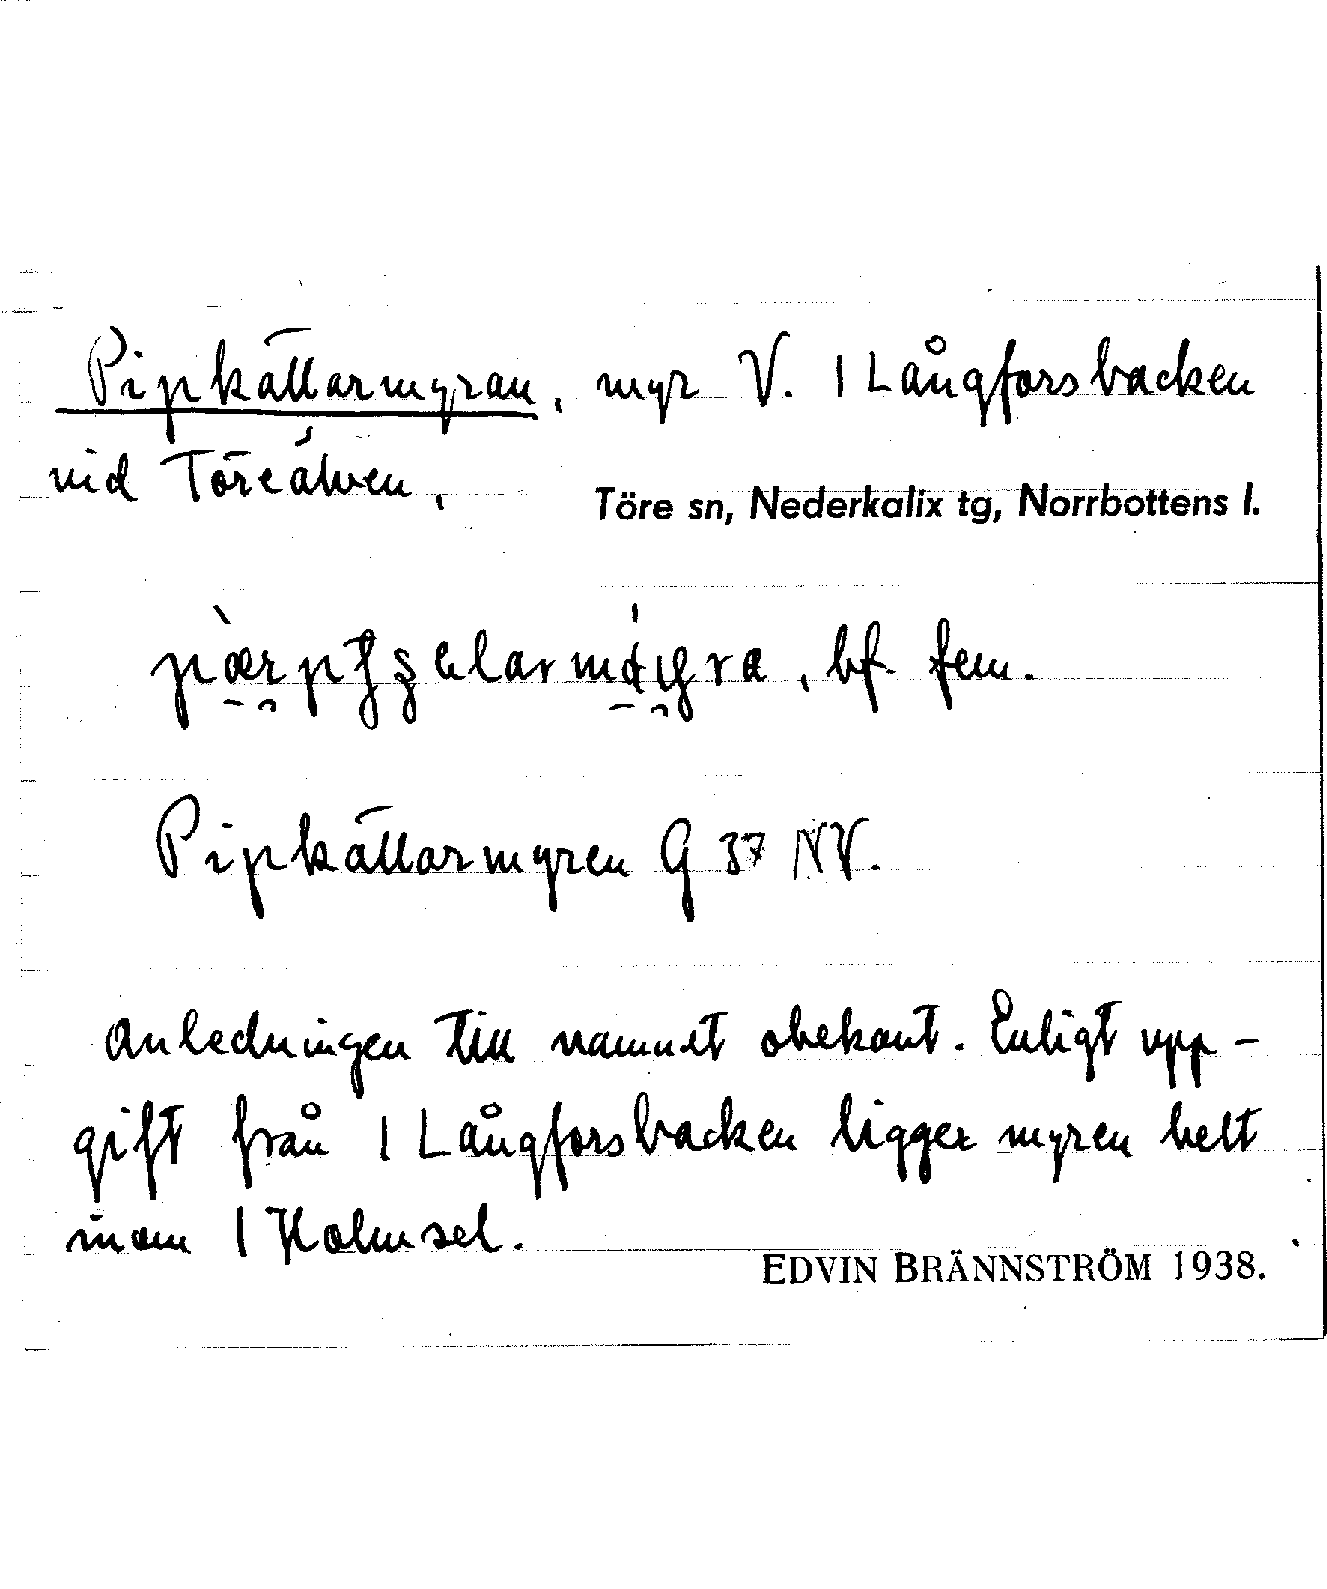 Pipkällarmyran, myr V. 1 Långforsbacken
vid Töreälven.
Töre sn, Nederkalix tg, Norrbottens l.
bf. fem.
Pipkällarmyren G 37 NV.
Anledningen till namnet obekant. Enligt upp-
gift från 1 Långforsbacken ligger myren helt
inom 1 Holmsel.
EDVIN BRÄNNSTRÖM 1938.